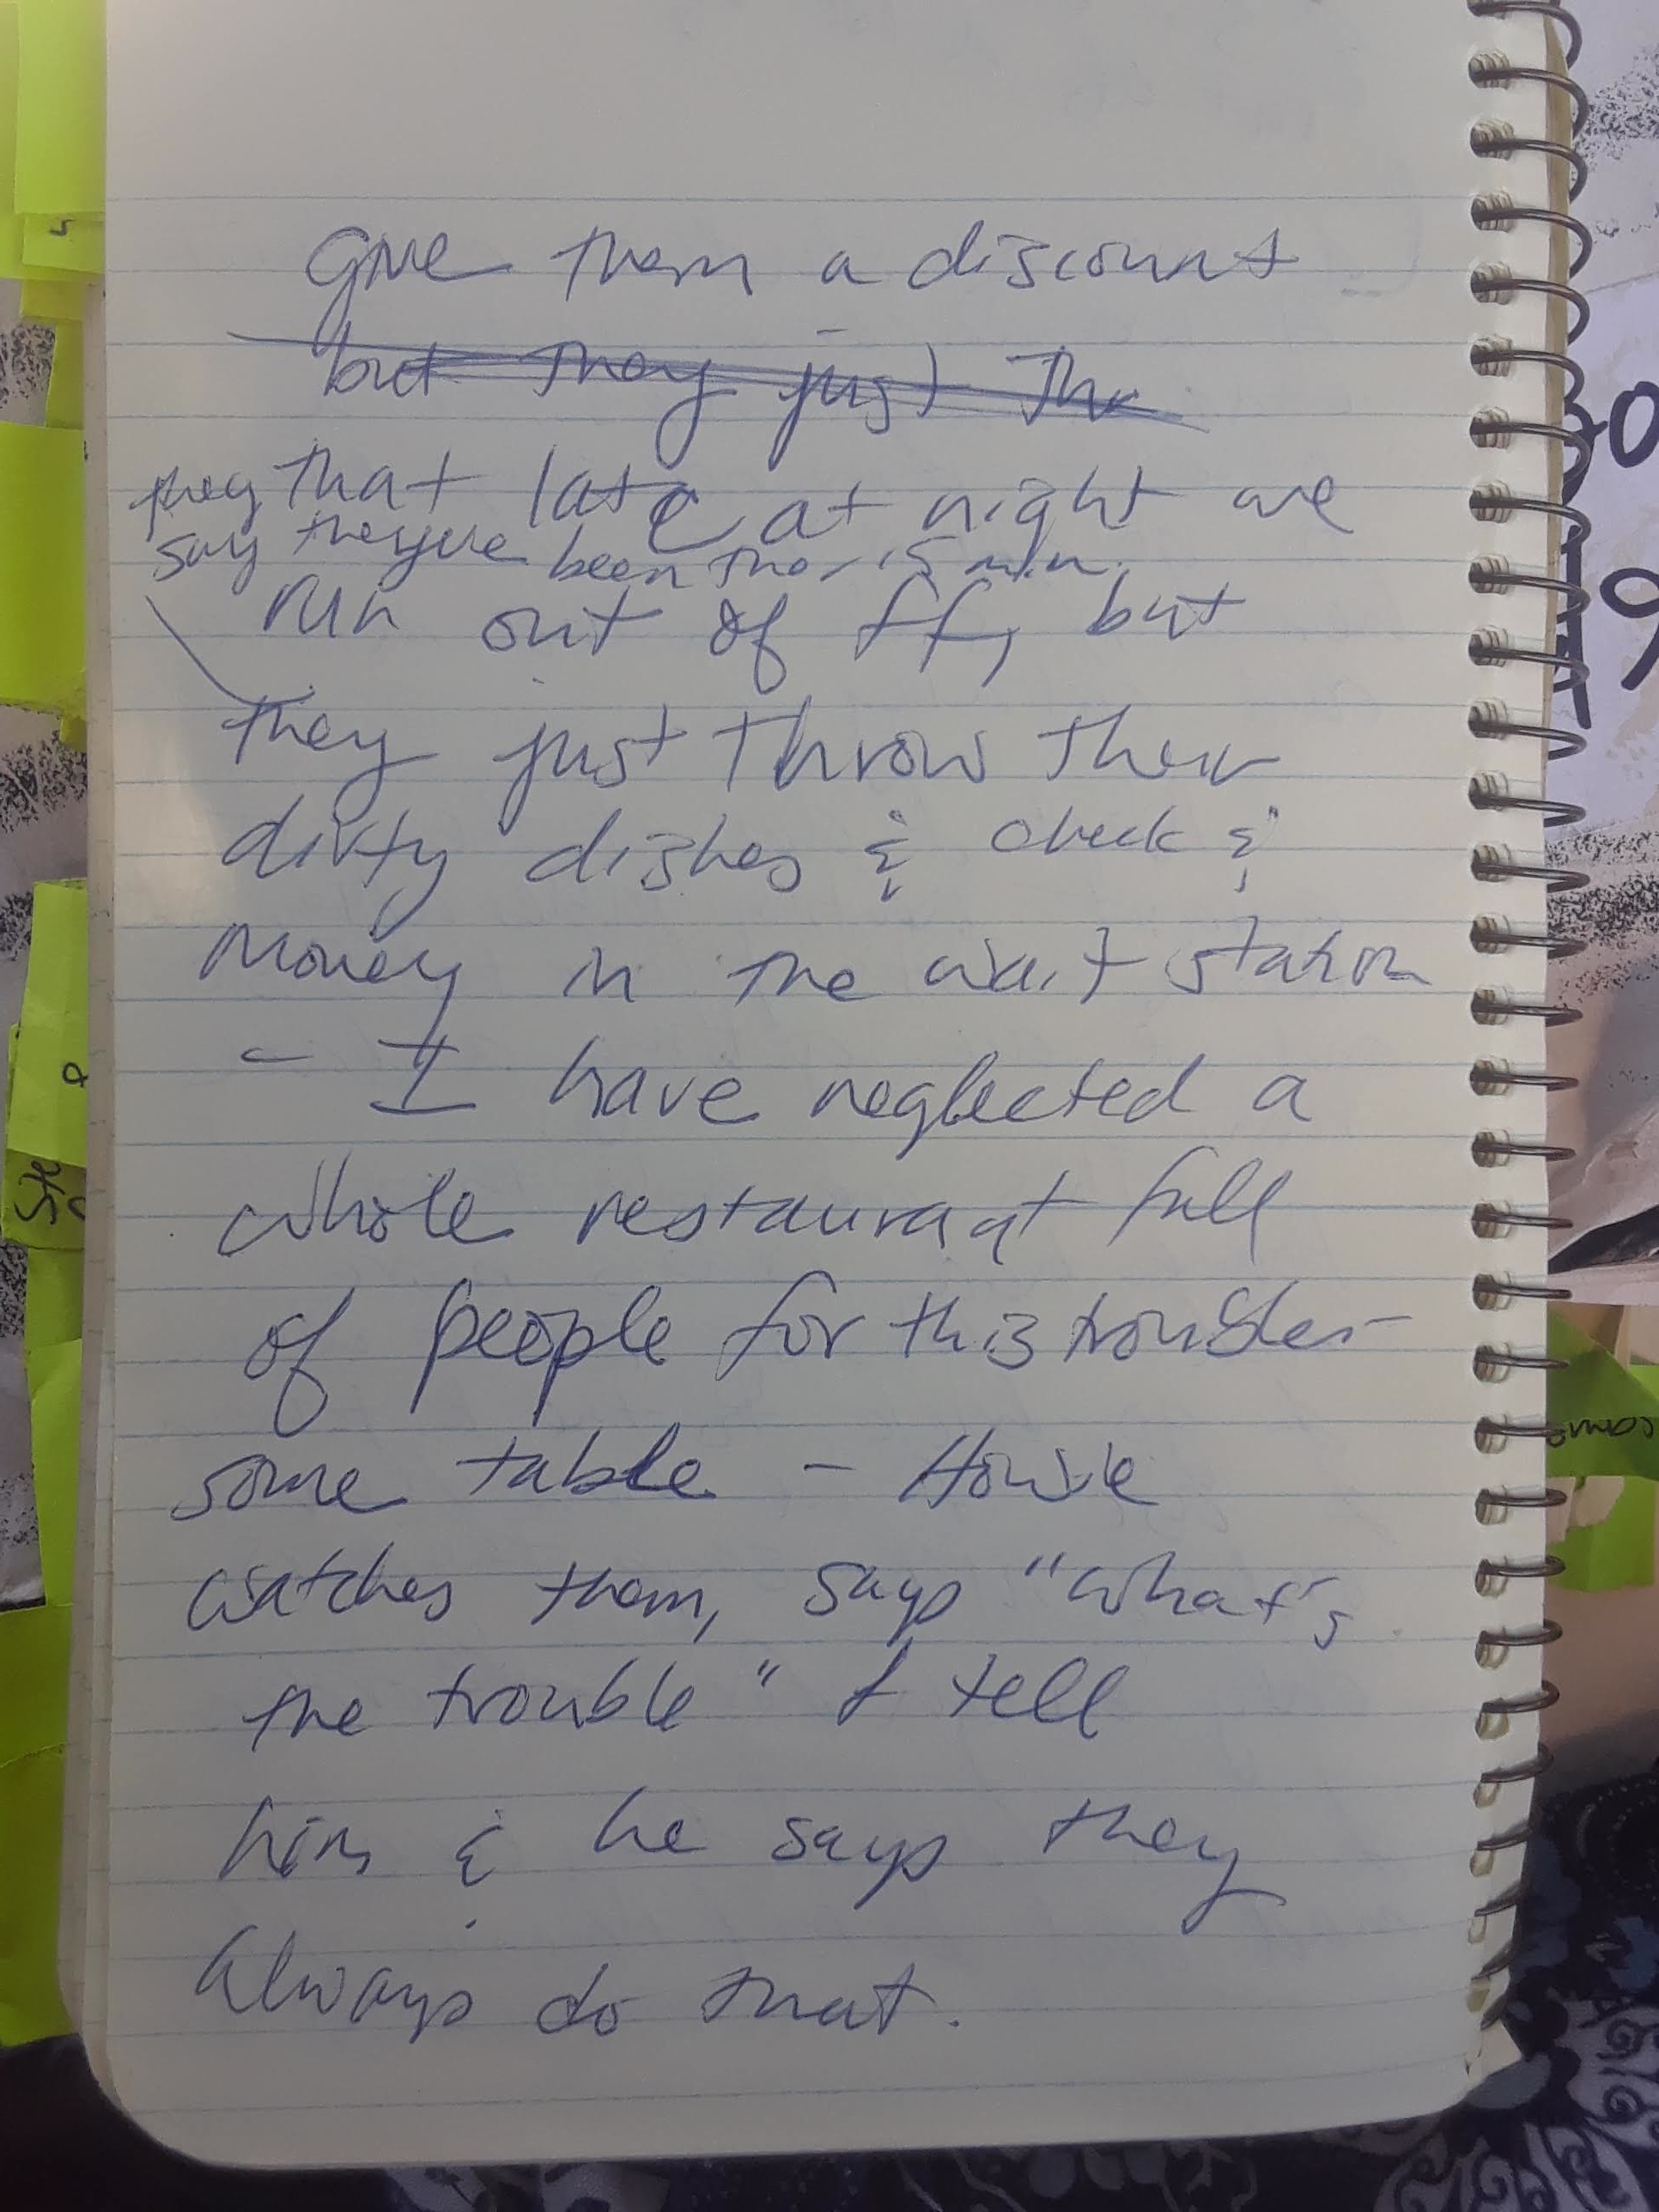 give them a discount
but they just the
they that late at night we
say they've been ther 15 min.
run out of ff, but
they just throw their
dirty dishes & check &
money in the wait station
- I have neglected a
whole restaurant full
of people for this trouble-
some table - Howie
watches them, says "what's
the trouble" I tell
him & he says they
always do that.
30
19